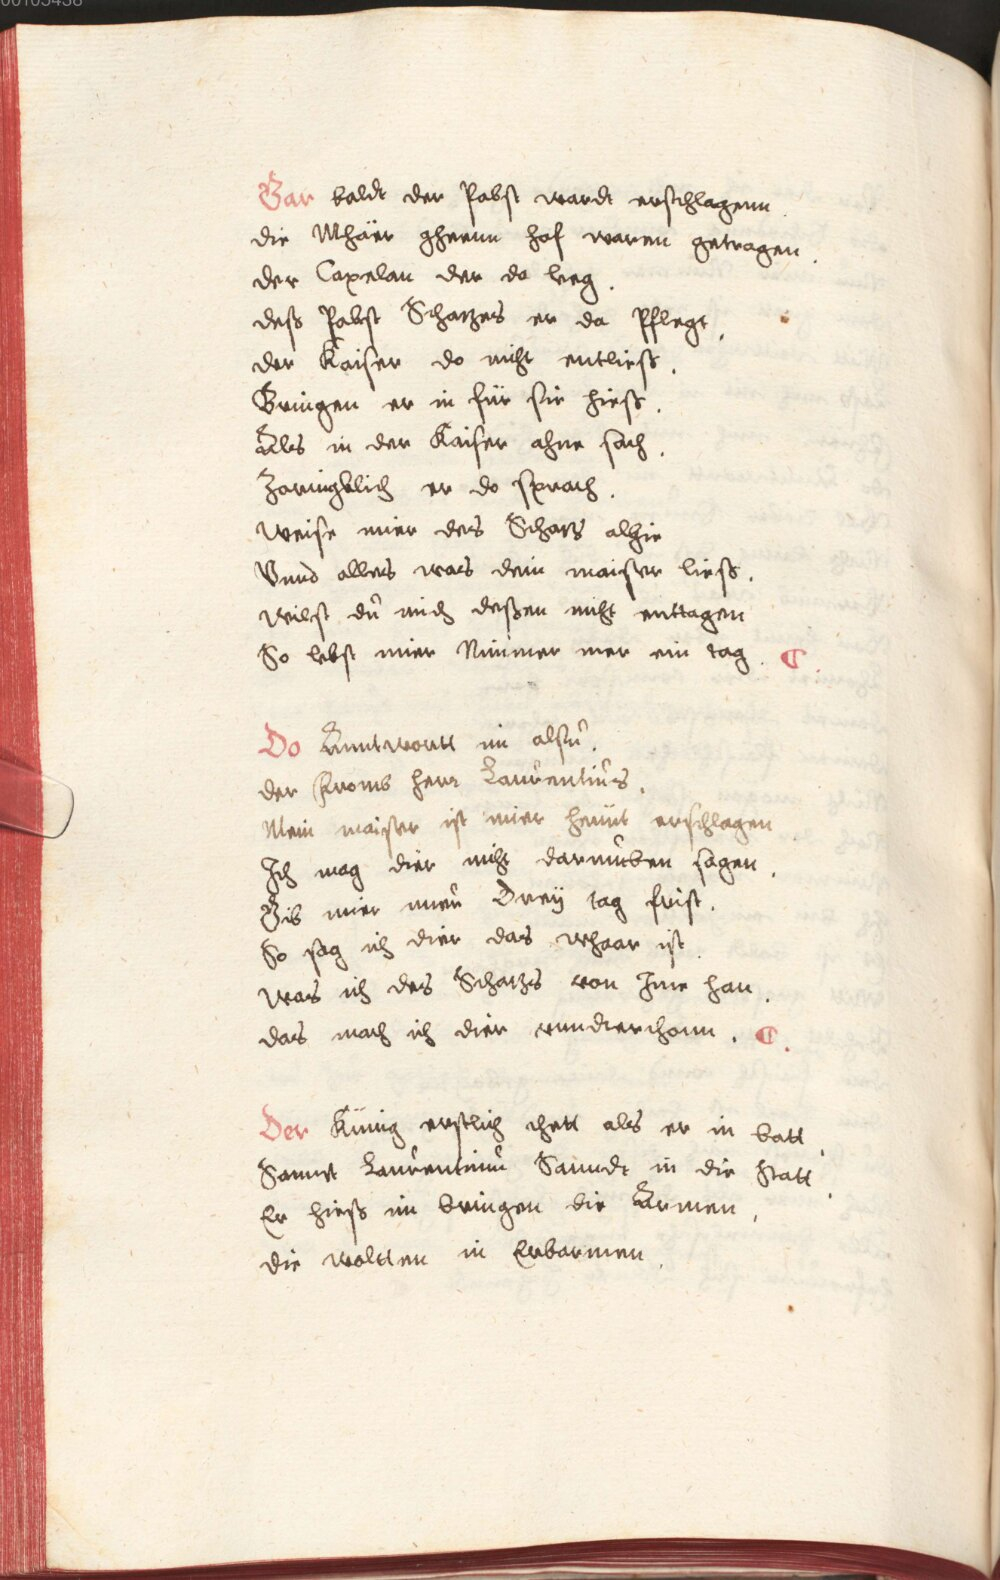 00105458
Gar baldt der Pabst wardt erschlagenn.
die Mhäer gheenn hof waren getragen.
der Capelan der da leg.
deß Pabst Schatzes er da Pflegt.
der Kaiser do nicht entließ.
Bringen er in für sie hieß.
Als in der Kaiser ahne sach.
Zornigklich er do sprach.
Weise mier des Schatz alhie
Vnnd alles was dein maister ließ.
Wilst dú mich deßen nicht enttagen
So lebst mier Nimmer mer ein tag. ¶.
Do Anntwortt im alsú.
der fromb herr Laúrentiús.
Mein maister ist mier heüut erschlagen
Ich mag dier nicht darnúben sagen.
Gib mier nuer Dreÿ tag frist.
So sag ich dier das whaar ist.
Was ich des Schatzs von Ime han.
das mach ich dier vnndterthonn. ¶.
Der Künig erstlich thett als er in batt.
Sannt Laúrentium Sanndt in die Statt.
Er hieß im bringen die Armen.
die woltten in Erbarmen.